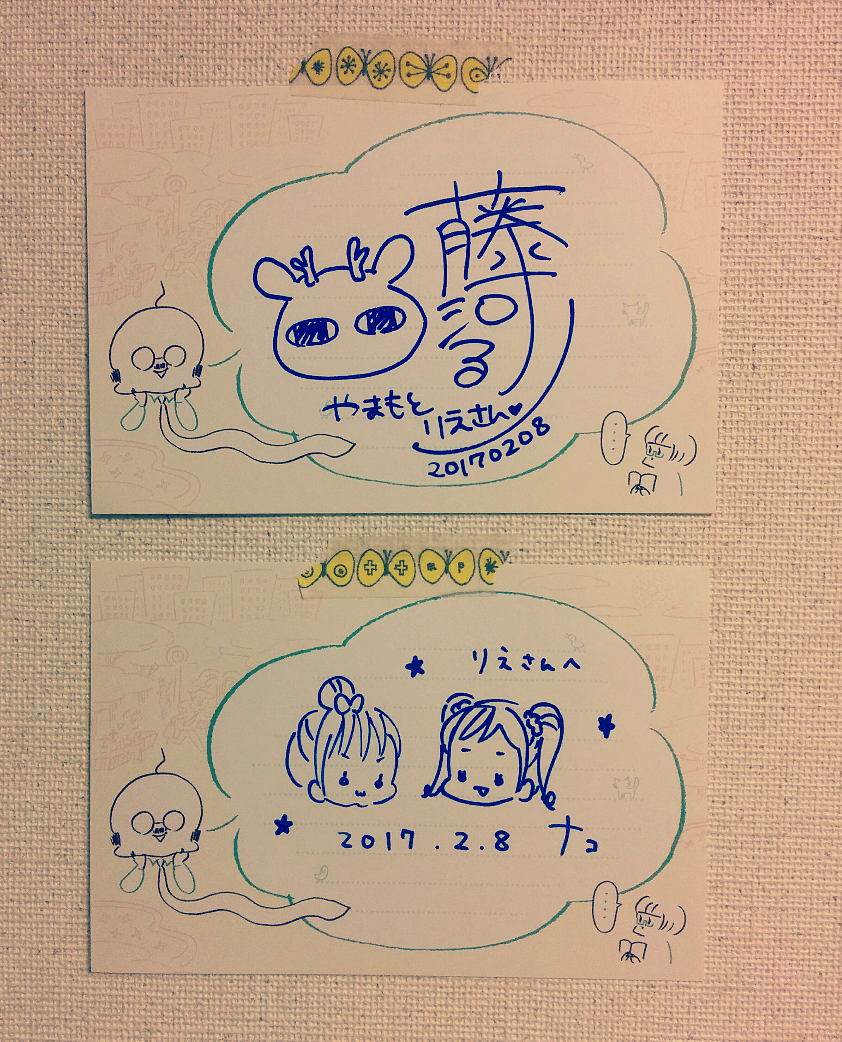 藤沼る
やまもと
りえさん♥
20170208
りえさんへ
2017.2.8 ナコ